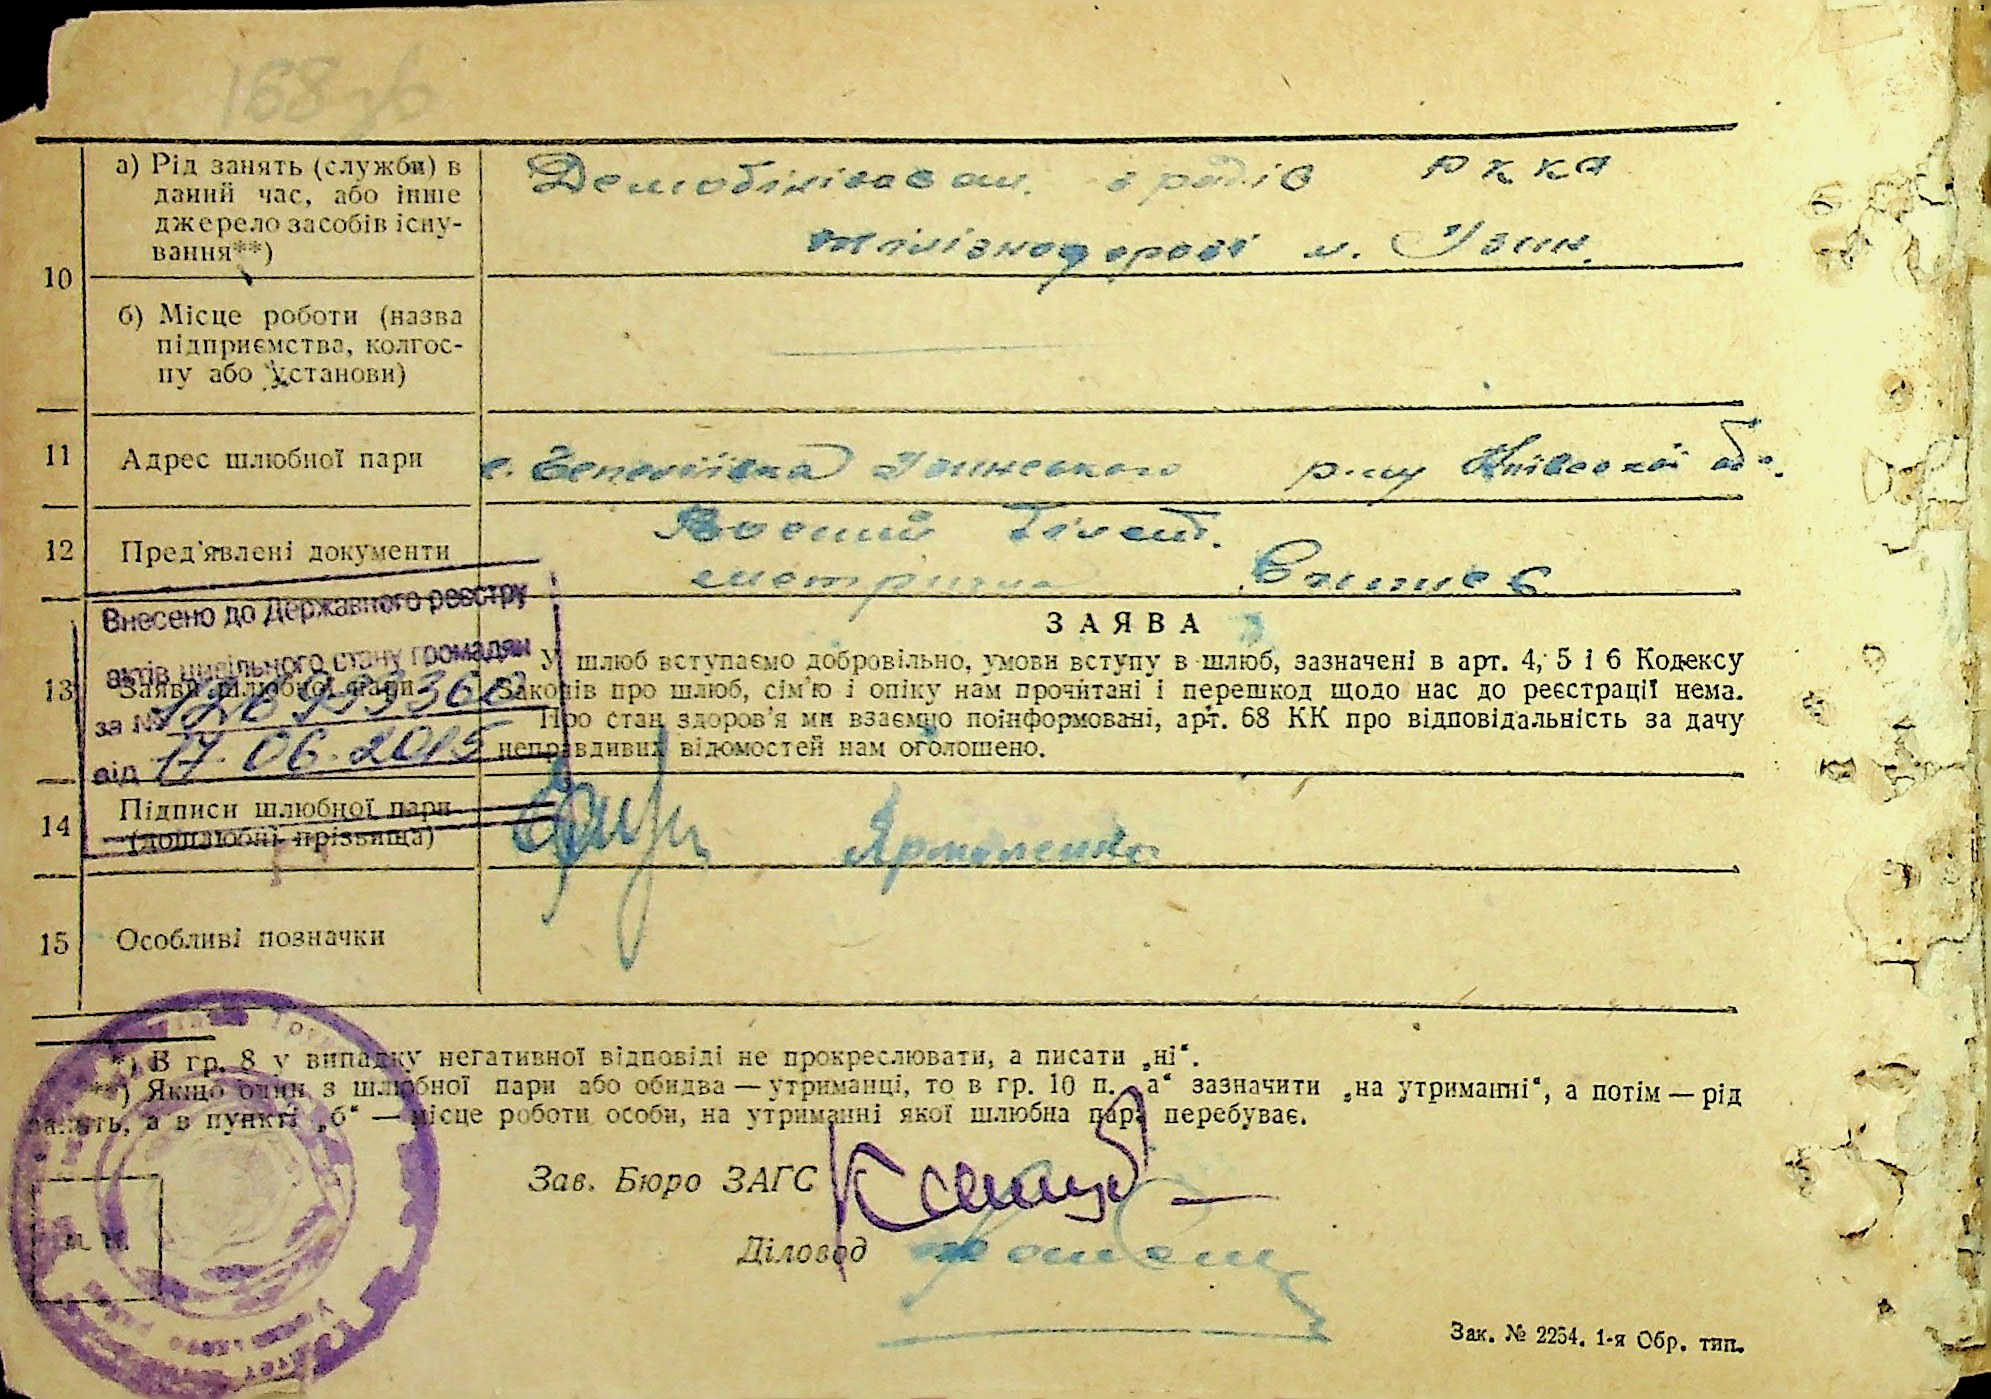 168 зв
10
а) Рід занять (служби) в
даний час, або інше
джерело засобів існу-
вання**)
Демобілізован. з рядів РККА
м. Узин.
б) Місце роботи (назва
підприємства, колгос-
пу або установи)
11
Адрес шлюбної пари
с. Узинського р-ну Київської об.
12
Пред'явлені документи
Воєний білет.
метрична
Внесено до Державного реєстру
актів цивільного стану громадян
за №
від 17.06.2015
13
Заява шлюбної пари
ЗАЯВА
У шлюб вступаємо добровільно, умови вступу в шлюб, зазначені в арт. 4, 5 і 6 Кодексу
Законів про шлюб, сім'ю і опіку нам прочитані і перешкод щодо нас до реєстрації нема.
Про стан здоров'я ми взаємно поінформовані, арт. 68 КК про відповідальність за дачу
неправдивих відомостей нам оголошено.
14
Підписи шлюбної пари
(дошлюбні прізвища)
Ярмоленко
15
Особливі позначки
*) В гр. 8 у випадку негативної відповіді не прокреслювати, а писати „ні“.
**) Якщо один з шлюбної пари або обидва — утриманці, то в гр. 10 п. „а“ зазначити „на утриманні“, а потім — рід
занять, а в пункті „б“ — місце роботи особи, на утриманні якої шлюбна пара перебуває.
Зав. Бюро ЗАГС
Діловод
М. П.
Зак. № 2254. 1-я Обр. тип.